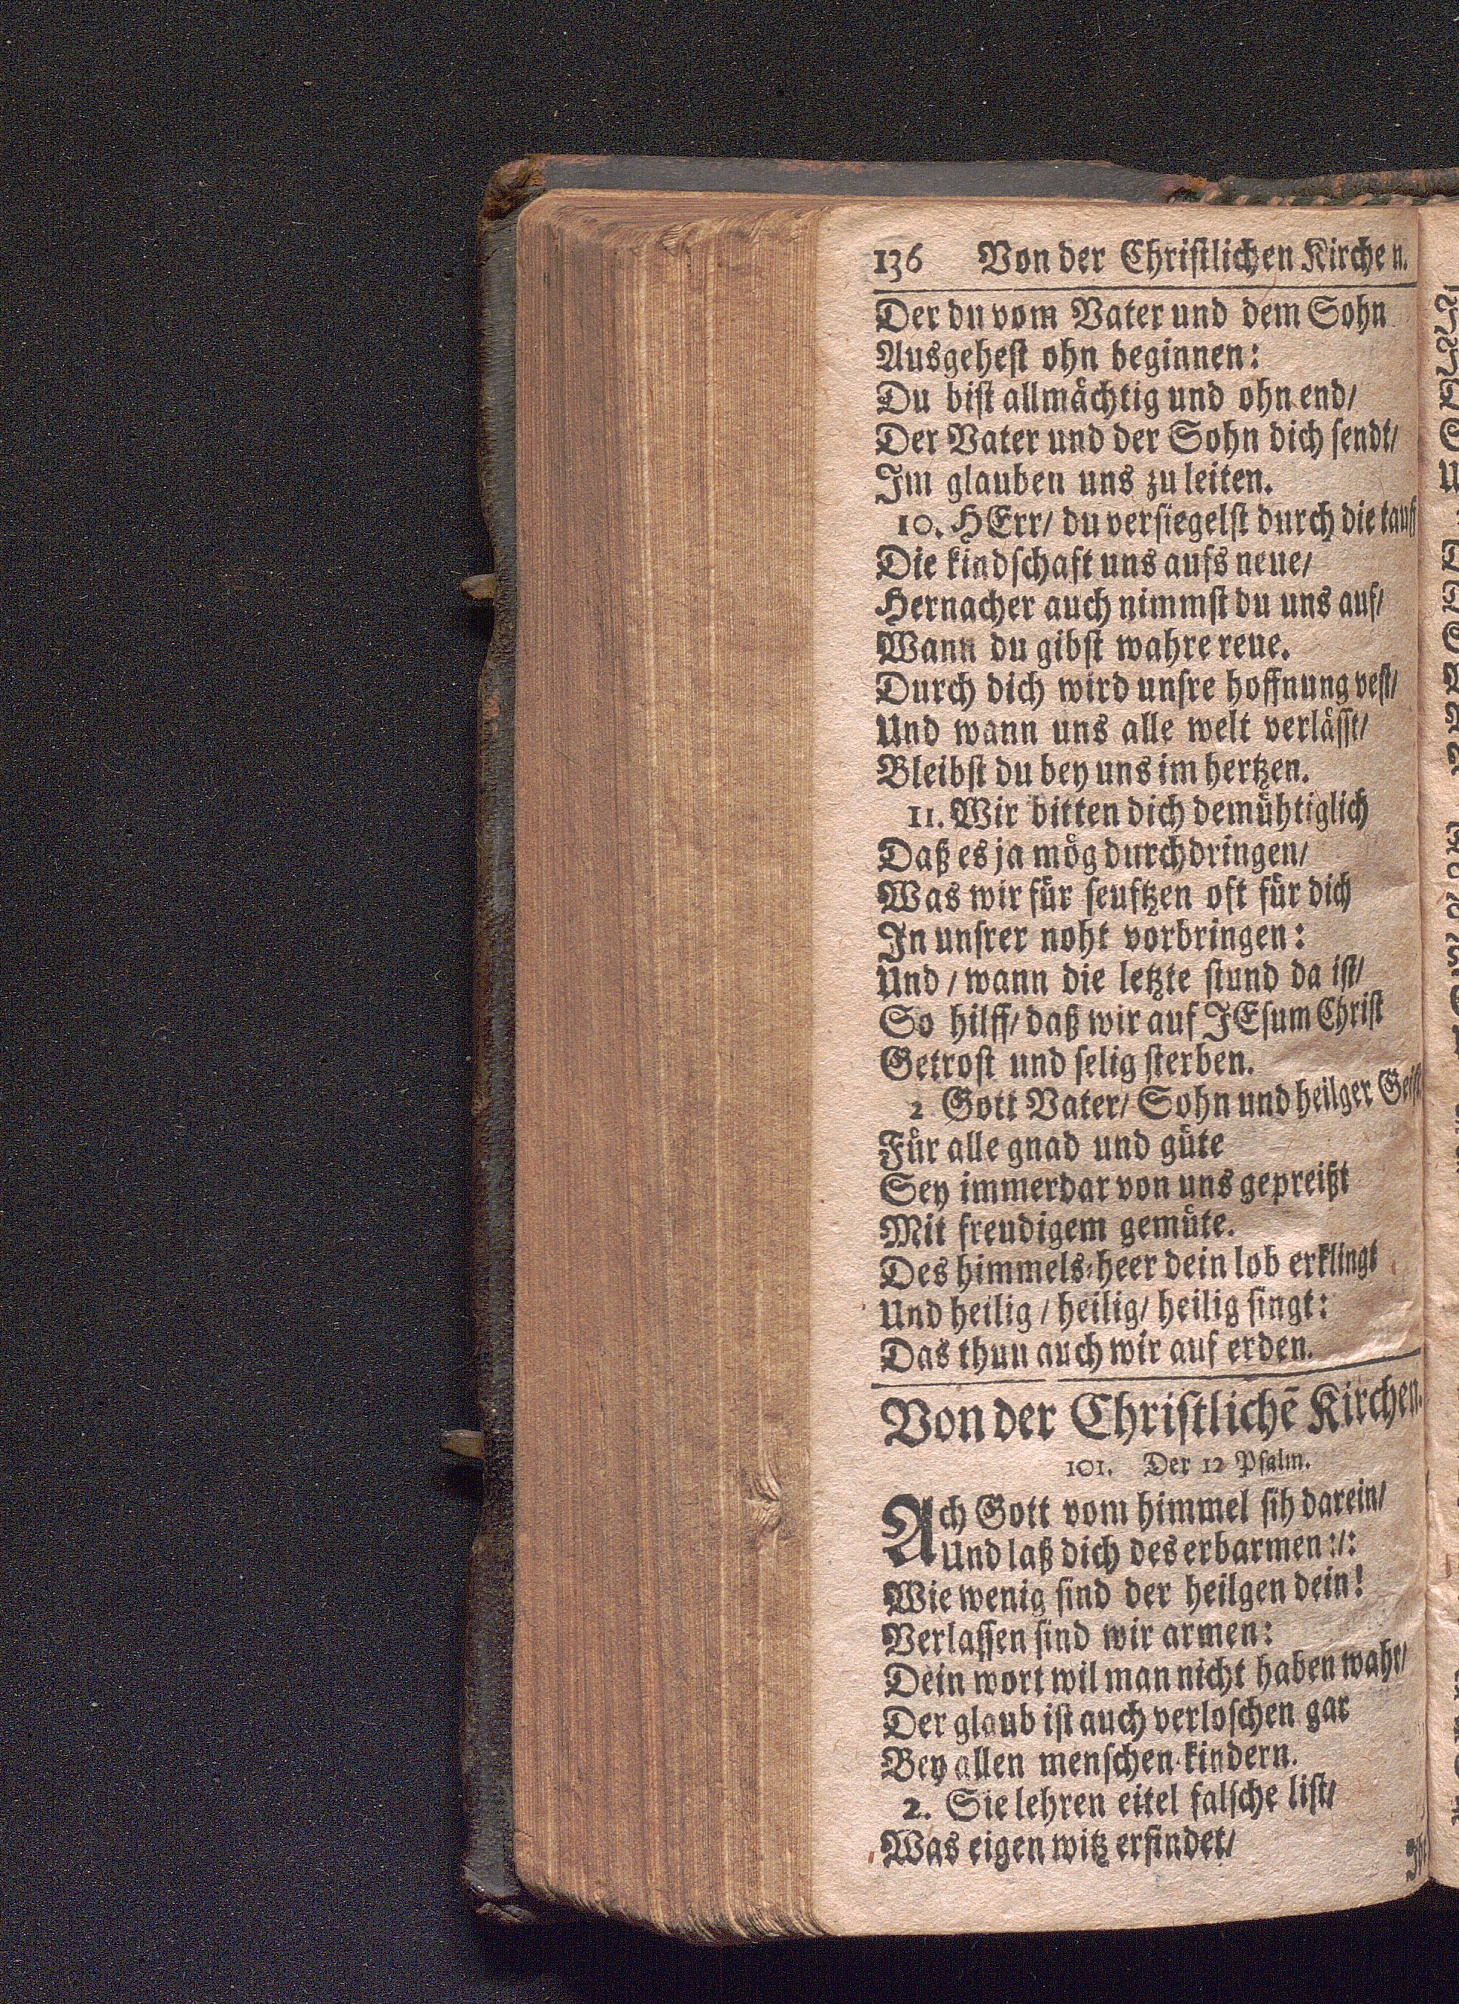 136 Von der Chriſtlichen Kirchen.
Der du vom Vater und dem Sohn
Ausgeheſt ohn beginnen:
Du biſt allmächtig und ohn end/
Der Vater und der Sohn dich ſendt/
Im glauben uns zu leiten.
10. HErr/ du verſiegelſt durch die tauff
Die kindſchaft uns aufs neue/
Hernacher auch nimmſt du uns auf/
Wann du gibſt wahre reue.
Durch dich wird unſre hoffnung veſt/
Und wann uns alle welt verläſſt/
Bleibſt du bey uns im hertzen.
11. Wir bitten dich demühtiglich
Daß es ja mög durchdringen/
Was wir für ſeuftzen oft für dich
In unſrer noht vorbringen:
Und / wann die letzte ſtund da iſt/
So hilff/ daß wir auf JEſum Chriſt
Getroſt und ſelig ſterben.
2 Gott Vater/ Sohn und heilger Geiſt
Für alle gnad und güte
Sey immerdar von uns gepreißt
Mit freudigem gemüte.
Des himmels-heer dein lob erklingt
Und heilig / heilig/ heilig ſingt:
Das thun auch wir auf erden.
Von der Chriſtlichẽ Kirchen.
101. Der 12 Pſalm.
Ach Gott vom himmel ſih darein/
Und laß dich des erbarmen :/:
Wie wenig ſind der heilgen dein!
Verlaſſen ſind wir armen:
Dein wort wil man nicht haben wahr/
Der glaub iſt auch verloſchen gar
Bey allen menſchen-kindern.
2. Sie lehren eitel falſche liſt/
Was eigen witz erfindet/